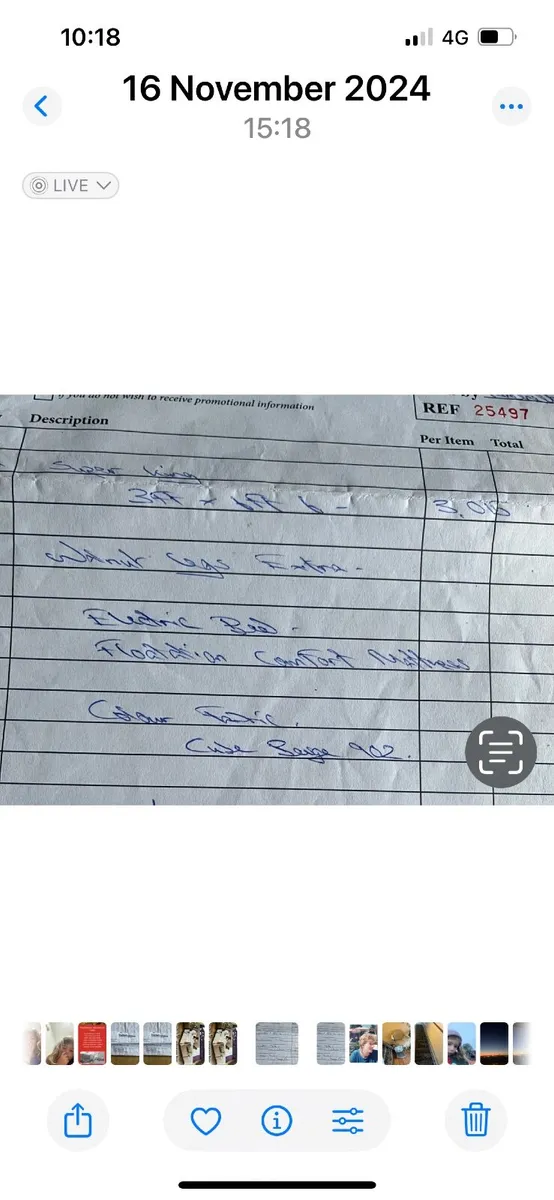 10:18
4G
16 November 2024
15:18
LIVE
if you do not wish to receive promotional information
REF 25497
Description
Per Item Total
Super King
3FT x 6FT 6 -
Walnut Legs Extra -
Electric Bed -
Floatation Comfort Mattress
Colour Fabric.
Cube Beige 902.